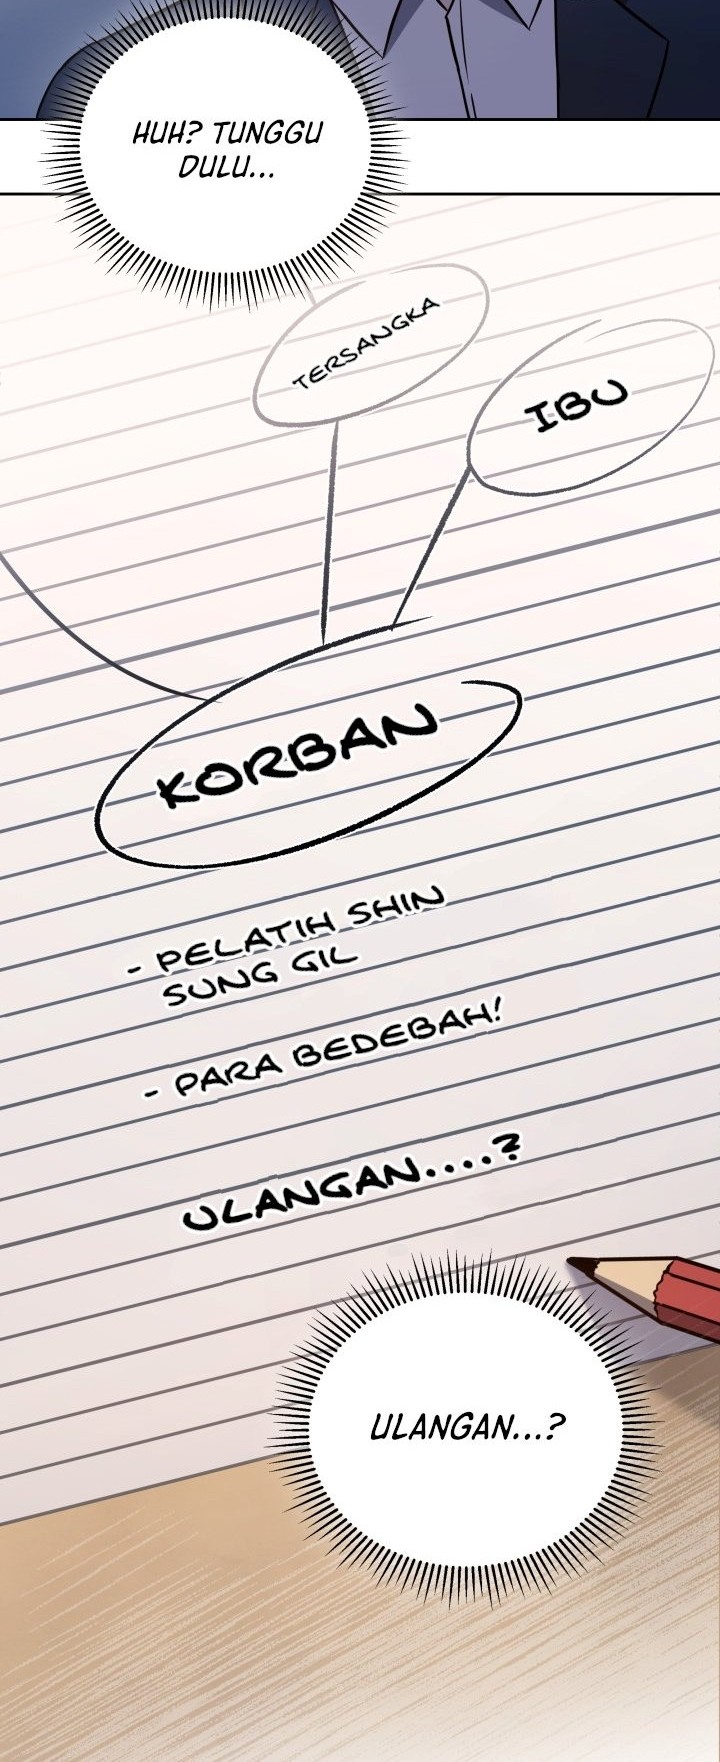 HUH? TUNGGU
DULU...
TERSANGKA
IBU
KORBAN
- PELATIH SHIN
SUNG GIL
- PARA BEDEBAH!
ULANGAN....?
ULANGAN...?